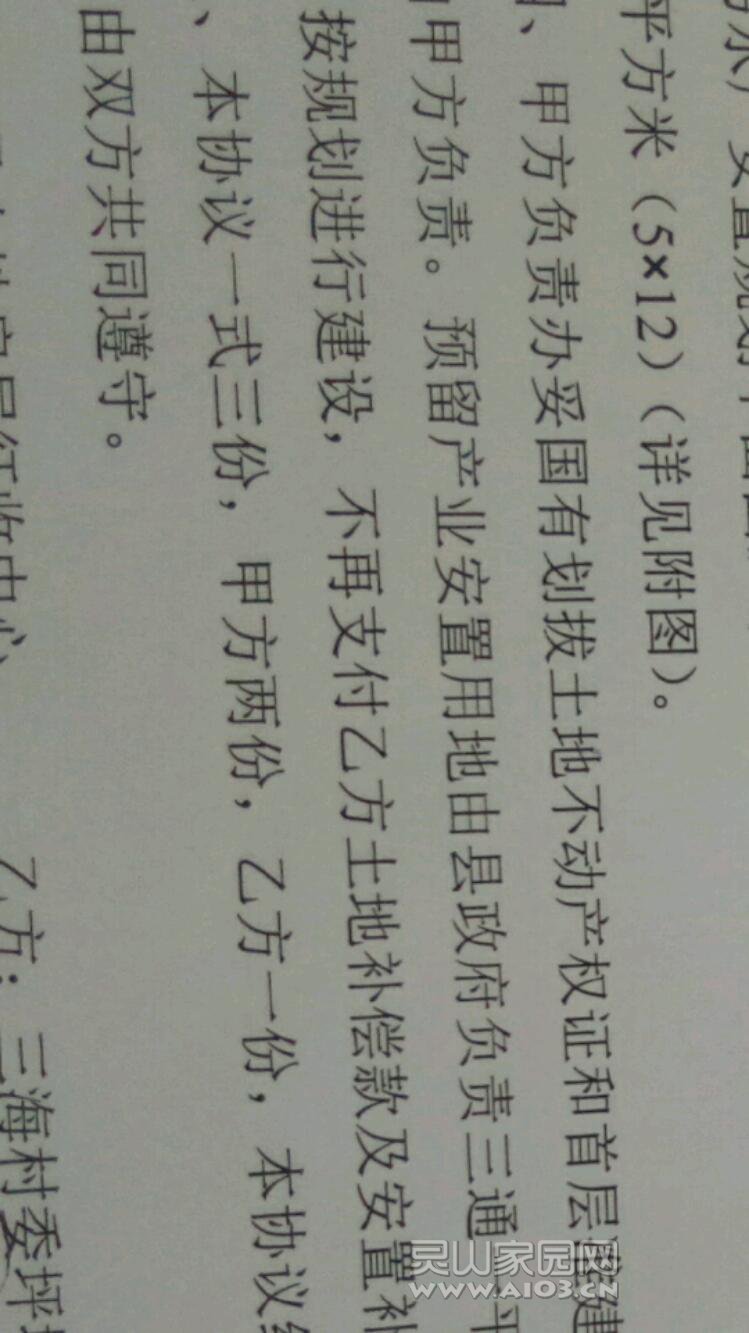 安置规划平面
平方米（5×12）（详见附图）。
、甲方负责办妥国有划拔土地不动产权证和首层建
甲方负责。预留产业安置用地由县政府负责三通一平
按规划进行建设，不再支付乙方土地补偿款及安置补
、本协议一式三份，甲方两份，乙方一份，本协议
由双方共同遵守。
征收中心
乙方：三海村委坪
灵山家园网
WWW.A103.CN